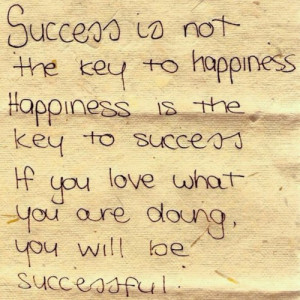 Success is not
the key to happiness
Happiness is the
key to success
If you love what
you are doung,
you will be
successful.